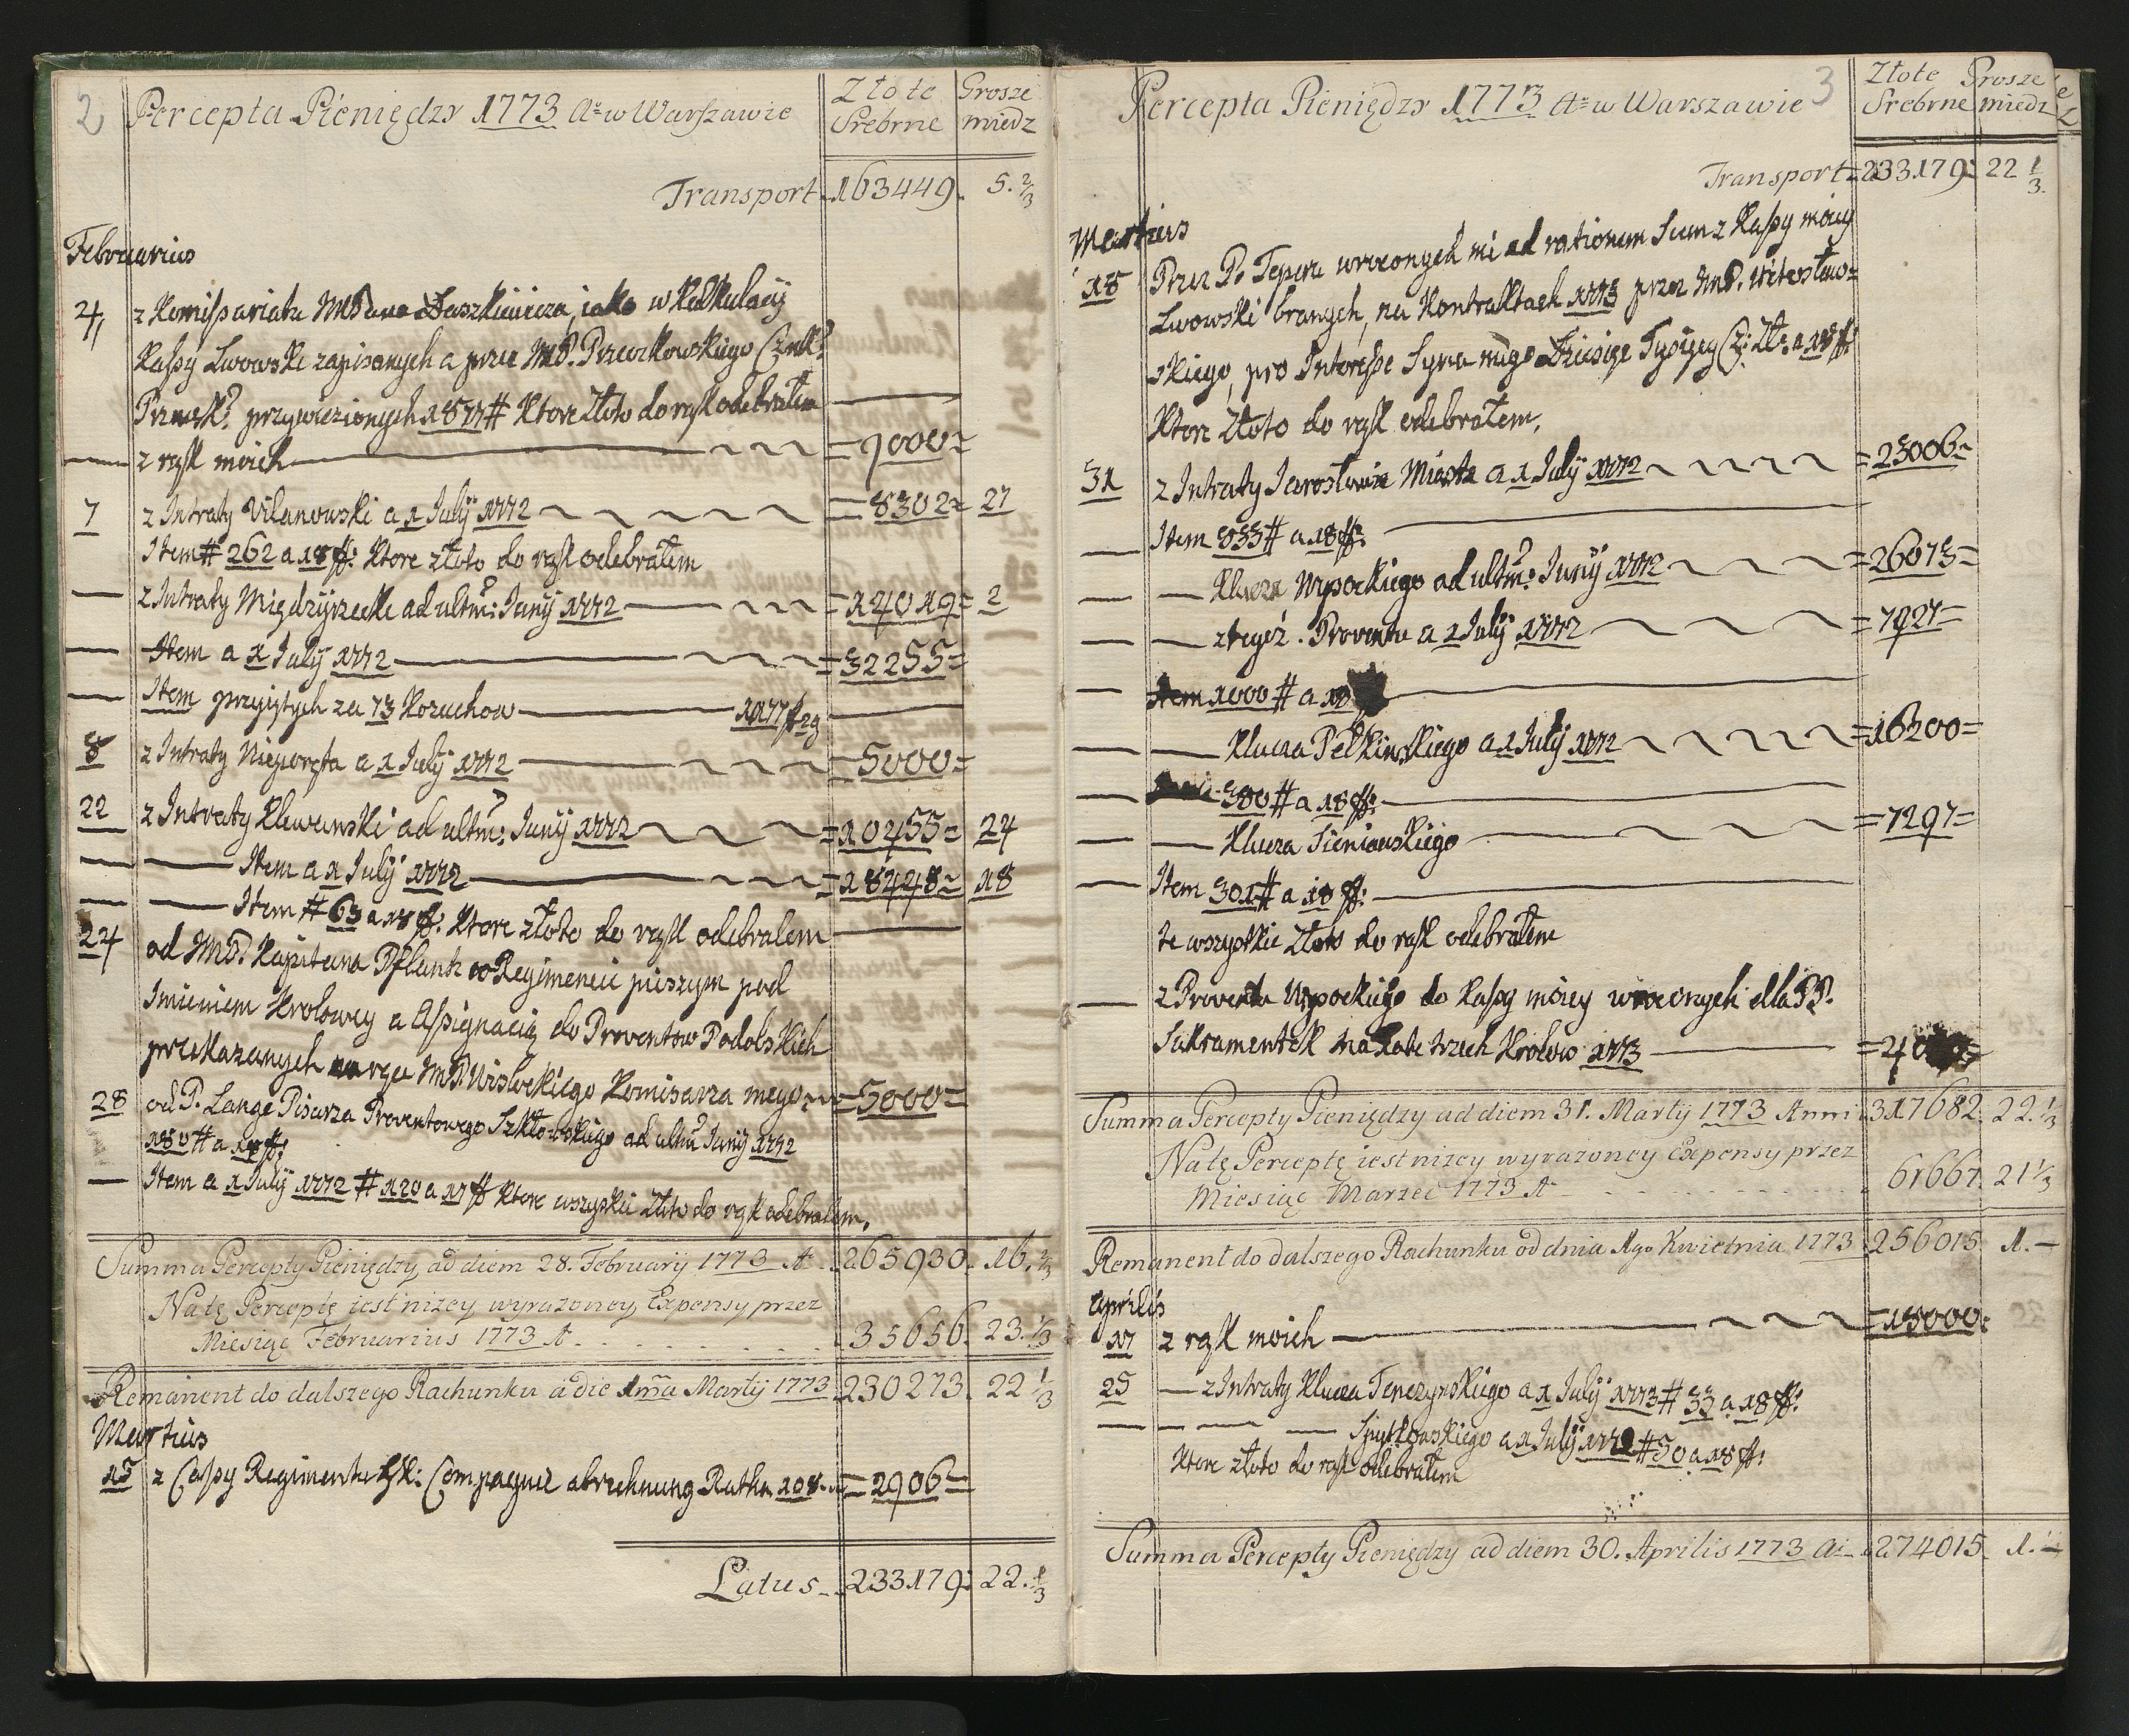 2 Percepta Pieniędzy 1773 Aº w Warszawie Złote Srebrne Grosze miedz
Transport 163449. 5. 2/3
Februarius
4, z Komissariatu MP Daszkiewicza, iako w Kalkulacij
Kassy Lwowski zapisanych a przez MP. Preczkowskiego
przywiezionych 1877# Ktore złoto do rąk odebrałem
z rąk moich =9000=
7 z Intraty Vilanowski a 1 Julij 1772 =8302= 27
Item # 262 a 18 ff: Ktore złoto do rąk odebrałem
z Intraty Międzyrzecki ad ultm: Junij 1772 =14019= 2
Item a 1 Julij 1772 =32255=
Item przyiętych za 73 Kozuchow
8 z Intraty Nieporęta a 1 Julij 1772 =5000=
22 z Intraty Klewanski ad ultm: Junij 1772 =10455= 24
Item a 1 Julij 1772 =18448= 18
Item # 63 a 18 ff: Ktore złoto do rąk odebralem
24 od MP. Kapitana Pflank w Regimencie pieszym pod
Imieniem Krolowey a Assignacią do Proventow Podolskich
przekazanych na ręce MP. Wisłockiego Komisarza mego =5000=
28 od P. Lange Pisarza Proventowego Szkłowskiego ad ultm Junij 1772
180 # a 18 ff:
Item a 1 Julij 1772 # 120 a 17 ff Ktore wszystkie złoto do rąk odebralem,
Summa Percepty Pieniędzy, ad diem 28. Februarij 1773 A 265930. 16. 2/3
Na tę Perceptę iest nizey wyrazoney Expensy przez
Miesiąc Februarius 1773 A 35656. 23. 1/3
Remanent do dalszego Rachunku a die 1ma Martij 1773 230273. 22 1/3
Martius
15 z Cassy Regimentu Compagnie abrechnung Ratha 108. =2906=
Latus 233179: 22. 1/3
Percepta Pieniędzy 1773 Aº w Warszawie 3 Złote Srebrne Grosze miedz
Transport 233179. 22 1/3.
Martius
18 Przez P. Tepera wroconych mi ad rationem Sum z Kassy moiey
Lwowski branych, na Kontraktach 1773 przez MP. Witosław=
skiego, pro Interesse Syna mego Dziesięc Tysięcy Cz: Zł: a 18 ff:
Ktore złoto do rąk odebrałem,
31 z Intraty Jarosławia Miasta a 1 Julij 1772 =23006=
Item 333 # a 18 ff:
Klucza Wysockiego ad ultm: Junij 1772 =26073=
z tegoż. Proventu a 1 Julij 1772 =7927=
Item 1000 # a 18
Klucza Pełkinskiego a 1 Julij 1772 =16200=
300 # a 18 ff:
Klucza Sieniawskiego =7297=
Item 301 # a 18 ff:
te wszystkie złoto do rąk odebrałem
z Proventu Wysockiego do Kassy moiey wroconych dla PP.
Sakramentek na Ratę trzech Krolow 1773
Summa Percepty Pieniędzy ad diem 31. Martij 1773 Anni 317682. 22. 1/3
Na tę Perceptę iest nizey wyrazoney Expensy przez
Miesiąc Marzec 1773 A 61667. 21 1/3
Remanent do dalszego Rachunku od dnia 1go Kwietnia 1773 256015. 1.—
Aprilis
17 z rąk moich =18000=
25 z Intraty Klucza Tenczynskiego a 1 Julij 1773 # 33 a 18 ff:
Spytkowskiego a 1 Julij 1772 # 50 a 18 ff:
Ktore złoto do rąk odebrałem
Summa Percepty Pieniędzy ad diem 30. Aprilis 1773 A: 274015. 1.—